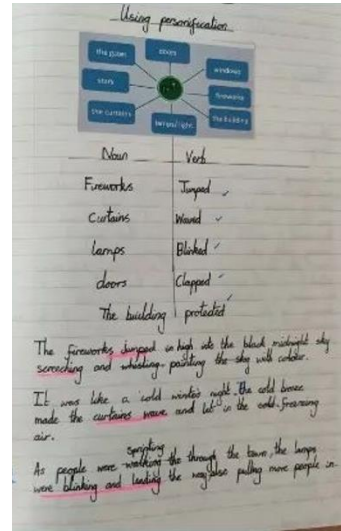 Using personification
the gates
doors
windows
stars
fireworks
the curtains
lamps/light
the building
Noun Verb
Fireworks Jumped
Curtains Waved
lamps Blinked
doors Clapped
The building protected
The fireworks jumped in high into the black midnight sky
screeching and whistling painting the sky with colour.
It was like a cold winters night. The cold breeze
made the curtains wave and let in the cold freezing
air.
sprinting
As people were walking the through the town, the lamps
were blinking and leading the way also pulling more people in.